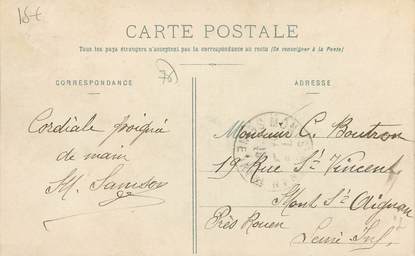 15t
CARTE POSTALE
Tous les pays étrangers n'acceptent pas la correspondance au recto (Se renseigner à la Poste)
CORRESPONDANCE
ADRESSE
Cordiale poignée
de main
M. Samson
Monsieur C. Boutron
19 Rue St Vincent
Mont St Aignan
Près Rouen
Seine Infre